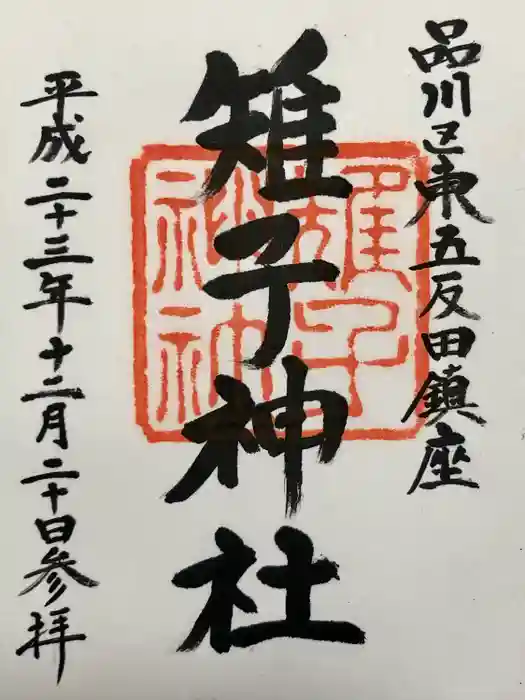 品川区東五反田鎮座
雉子神社
平成二十三年十二月二十日参拝
雉子
神社